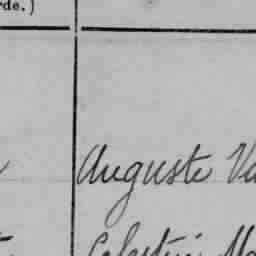 rde.)
Auguste Va
Celestin Ma